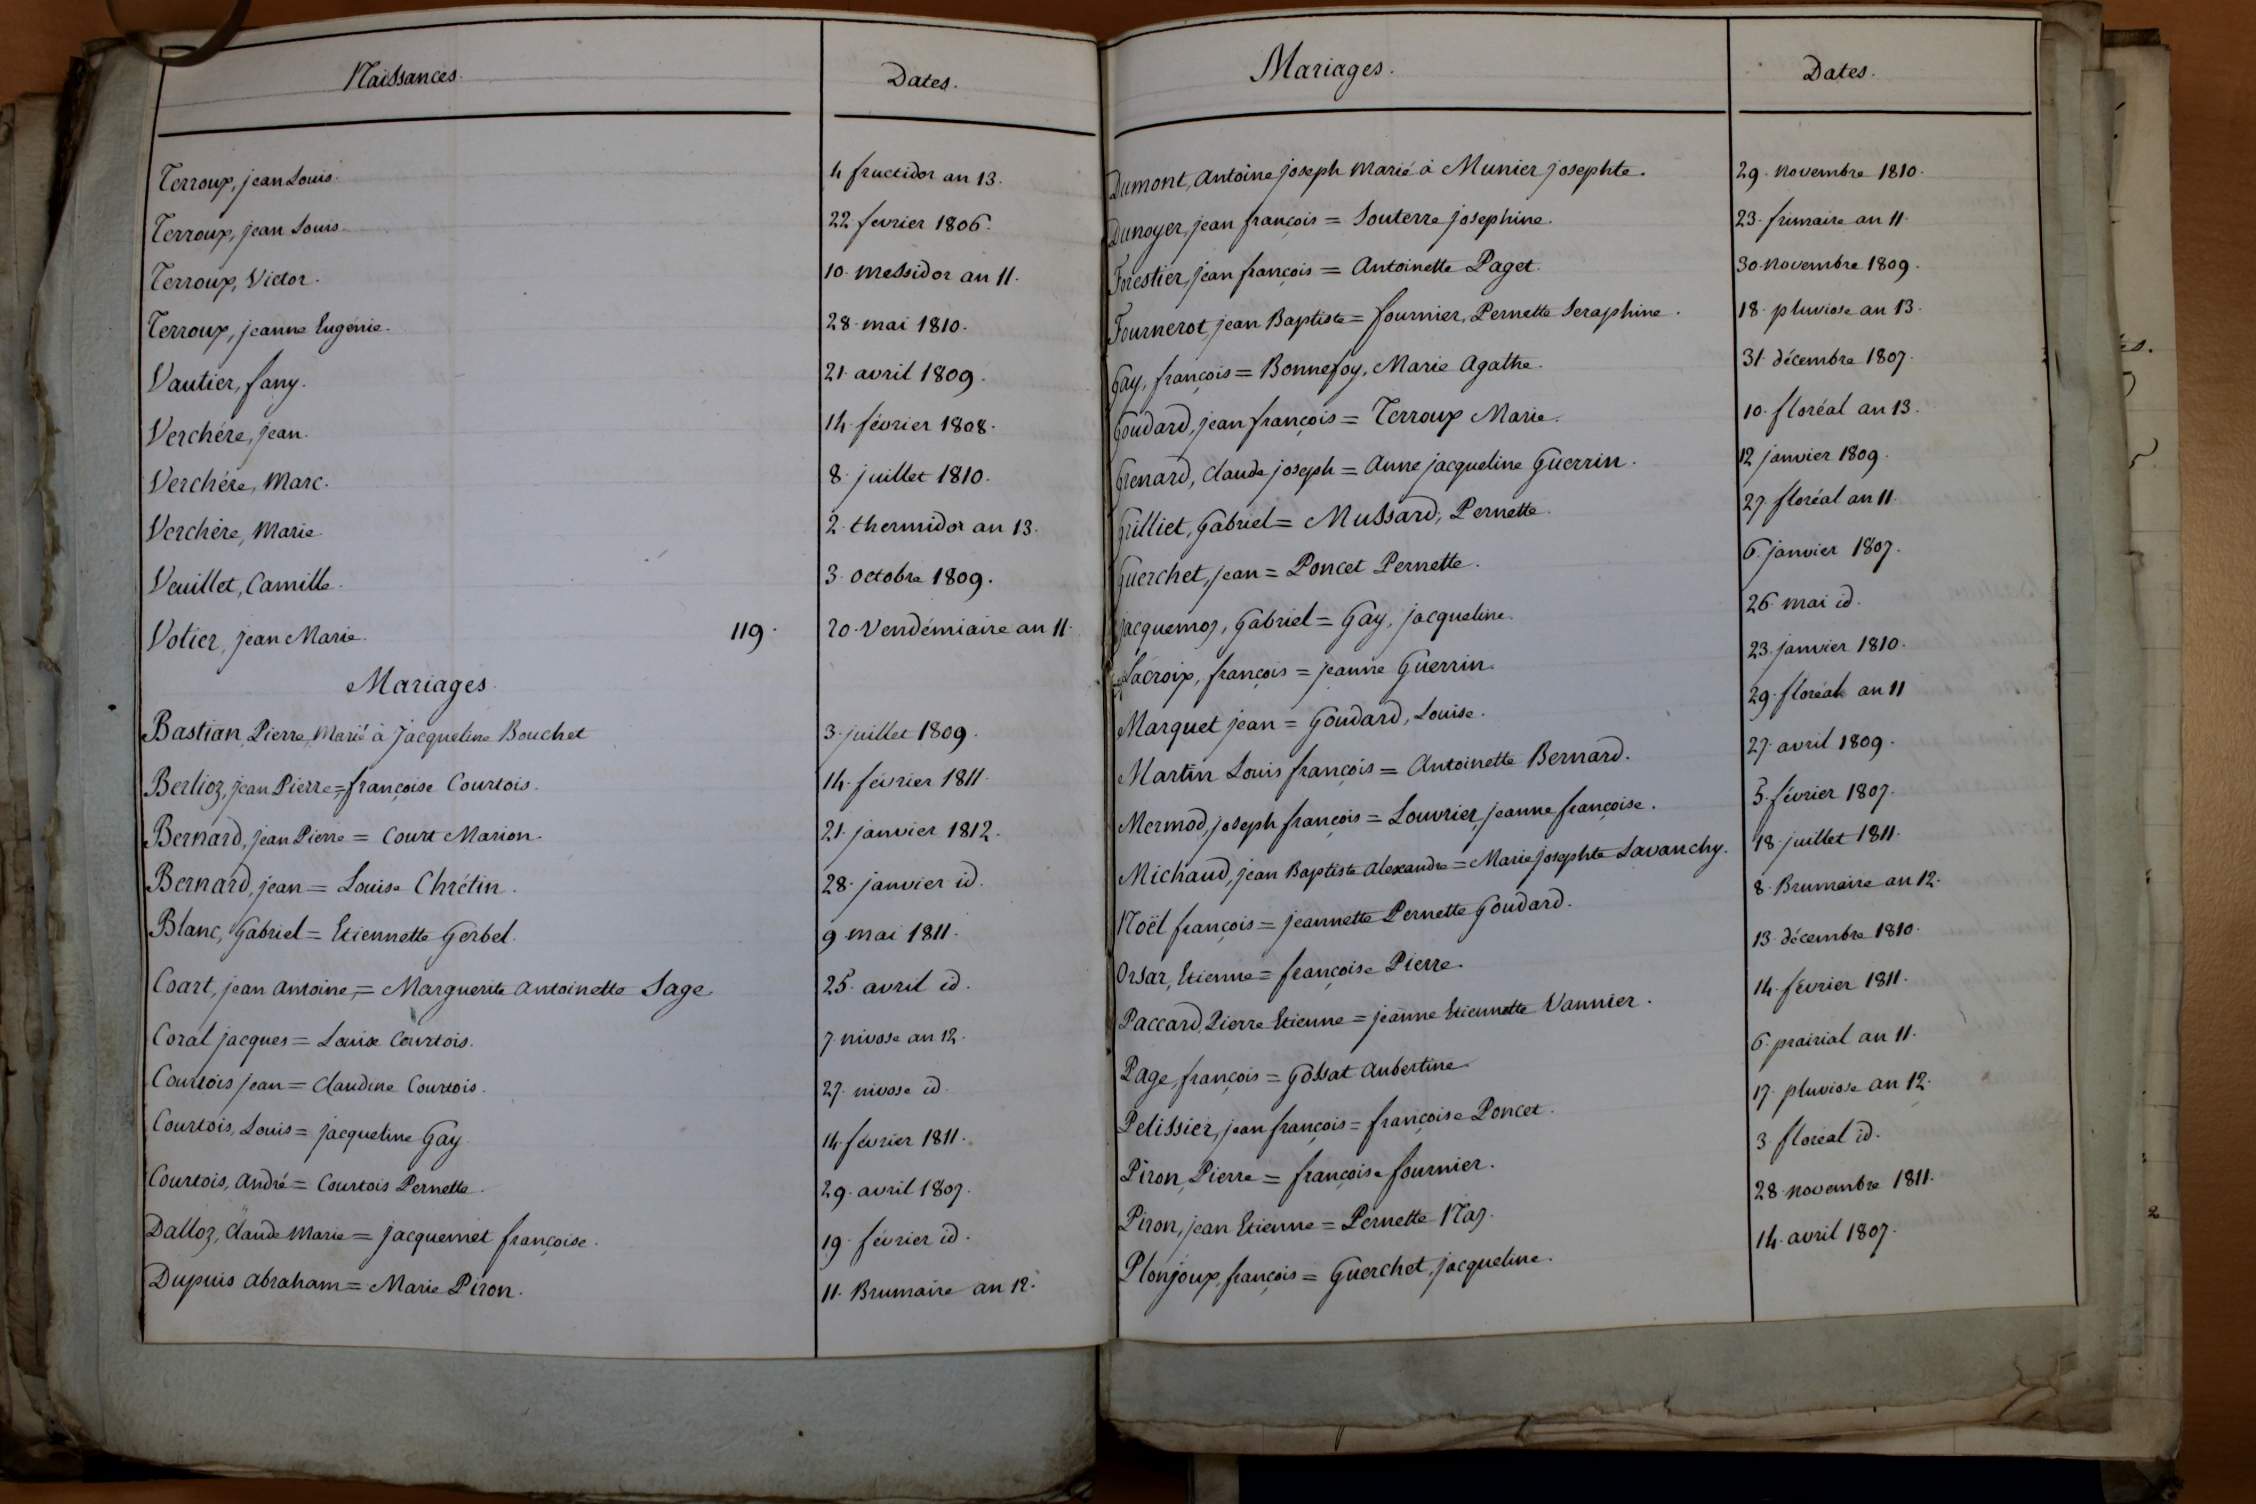 Naissances. Dates.
Terroux, jean Louis. 4 fructidor an 13.
Terroux, jean Louis. 22 fevrier 1806.
Terroux, Victor. 10. Messidor an 11.
Terroux, jeanne Eugénie. 28. mai 1810.
Vautier, fany. 21. avril 1809.
Verchére, jean. 14. février 1808.
Verchére, Marc. 8. juillet 1810.
Verchère, Marie. 2. thermidor an 13.
Veuillet, Camille. 3. octobre 1809.
Votier, jean Marie. 119. 20. Vendémiaire an 11.
Mariages.
Bastian, Pierre, Marié à Jacqueline Bouchet 3. juillet 1809.
Berlioz, jean Pierre = françoise Courtois. 14. février 1811.
Bernard, jean Pierre = Court Marion. 21. janvier 1812.
Bernard, jean = Louise Chrétin. 28. janvier id.
Blanc, Gabriel = Etiennette Gerbel. 9 mai 1811.
Coart, jean antoine, = Marguerite antoinette Sage 25. avril id.
Coral jacques = Louise Courtois. 7. nivose an 12.
Courtois jean = Claudine Courtois. 27. nivose id.
Courtois, Louis = jacqueline Gay. 14. février 1811.
Courtois, andré = Courtois Pernette. 29. avril 1807.
Dalloz, Claude Marie = jacquemet françoise. 19. février id.
Dupuis abraham = Marie Piron. 11. Brumaire an 12.
Mariages. Dates.
Dumont, Antoine joseph Marié à Munier josephte. 29. novembre 1810.
Dunoyer, jean françois = Souterre josephine. 23. frimaire an 11.
Forestier, jean françois = Antoinette Paget. 30. novembre 1809.
Fournerot, jean Baptiste = fournier, Pernette Seraphine. 18. pluviose an 13.
Gay, françois = Bonnefoy, Marie agathe. 31. décembre 1807.
Goudard, jean françois = Terroux Marie. 10. floréal an 13.
Grenard, Claude joseph = anne jacqueline Guerrin. 12 janvier 1809.
Grilliet, Gabriel = Mussard, Pernette. 27. floréal an 11.
Guerchet, jean = Poncet Pernette. 6. janvier 1807.
jacquemoz, Gabriel = Gay, jacqueline. 26. mai id.
Lacroix, françois = jeanne Guerrin. 23. janvier 1810.
Marquet jean = Goudard, Louise. 29. floréal an 11
Martin Louis françois = Antoinette Bernard. 27. avril 1809.
Mermod, joseph françois = Louvrier, jeanne françoise. 5. février 1807.
Michaud, jean Baptiste alexandre = Marie josephte Lavanchy. 18. juillet 1811.
Noël françois = jeannette Pernette Goudard. 8. Brumaire an 12.
Orsar, Etienne = françoise Pierre. 13. décembre 1810.
Paccard, Pierre Etienne = jeanne Etiennette Vannier. 14. février 1811.
Page, françois = Gossat aubertine. 6. prairial an 11.
Pelissier, jean françois = françoise Poncet. 17. pluviose an 12.
Piron, Pierre = françoise fournier. 3. floréal id.
Piron, jean Etienne = Pernette Naz. 28. novembre 1811.
Plonjoux, françois = Guerchet, jacqueline. 14. avril 1807.